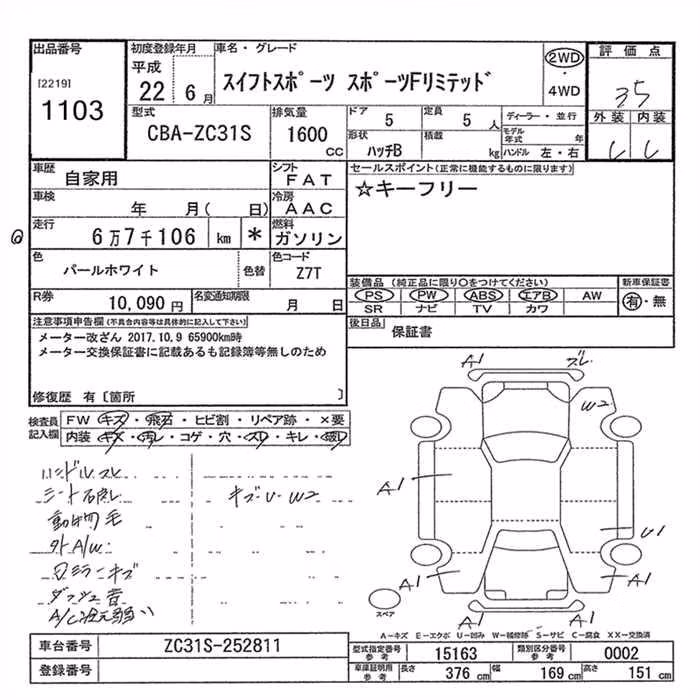 出品番号
[2219]
1103
初度登録年月
平成
22 6月
車名・グレード
スイフトスポーツ スポーツFリミテッド
2WD
・
4WD
評価点
3.5
外装 内装
型式
CBA-ZC31S
排気量
1600 CC
ドア 5
定員 5人
ディーラー・並行
形状 ハッチB
積載 kg
モデル年式 年
ハンドル 左・右
車歴
自家用
シフト
FAT
セールスポイント(正常に機能するものに限ります)
☆キーフリー
車検
年 月( 日)
冷房
AAC
走行
6万7千106 km *
燃料
ガソリン
色
パールホワイト
色替
色コード
Z7T
装備品(純正品に限り○をつけてください)
PS PW ABS エアB AW
SR ナビ TV カワ
新車保証書
有・無
R券
10,090円
名変通知期限
月 日
後日品
保証書
注意事項申告欄(不具合内容等は具体的に記入して下さい)
メーター改ざん 2017.10.9 65900km時
メーター交換保証書に記載あるも記録簿等無しのため
修復歴 有〔箇所 〕
検査員記入欄
FW キズ・飛石・ヒビ割・リペア跡・×要
内装 キズ・汚レ・コゲ・穴・スレ・キレ・破レ
ハンドルスレ
シート汚レ
動物毛
外A/W
キズ・U・W2
ダッシュ音
A1 ズレ
W2
A1
U1
A1
A1
A1
スペア
A-キズ E-エクボ U-凹み W-補修跡 S-サビ C-腐食 XX-交換済
車台番号
ZC31S-252811
登録番号
型式指定番号 参考
15163
類別区分番号 参考
0002
車庫証明用 参考
長さ 376cm 幅 169cm 高さ 151cm